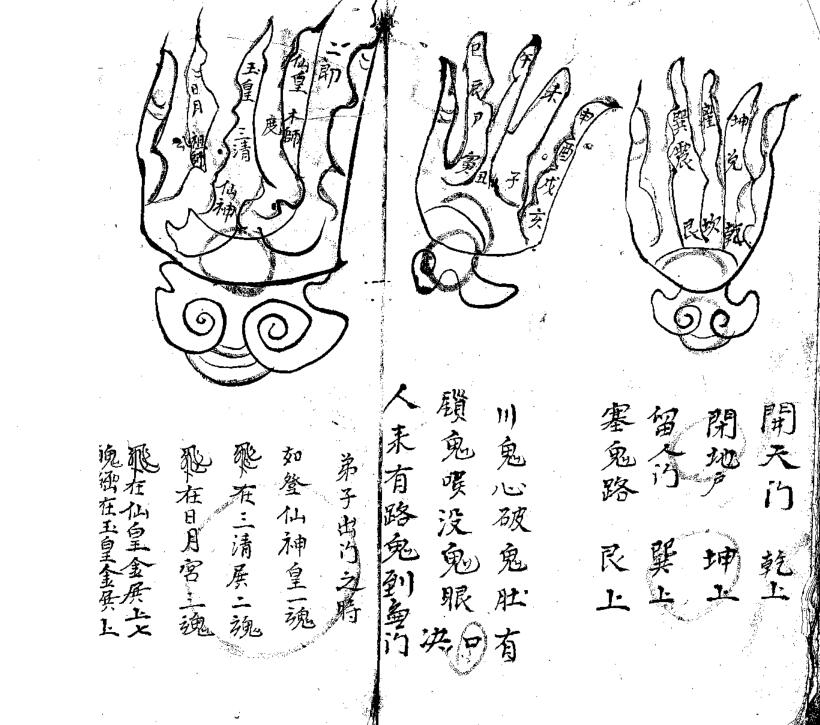 巽 震 艮
離 坎
坤 兌 乾
巳 辰 卯 寅 丑
午 子
未
申 酉 戌 亥
二郎
仙皇 本師
玉皇 三清 仙神
度
日月 祖師
開天门 乾上
閉地户 坤上
留人门 巽上
塞鬼路 艮上
川鬼心破鬼肚有
鎖鬼喷没鬼眼 口决
人来有路鬼到無门
弟子出门之時
如登仙神皇一魂
飛在三清展二魂
飛在日月宮三魂
飛在仙皇金展上七
魄在玉皇金展上